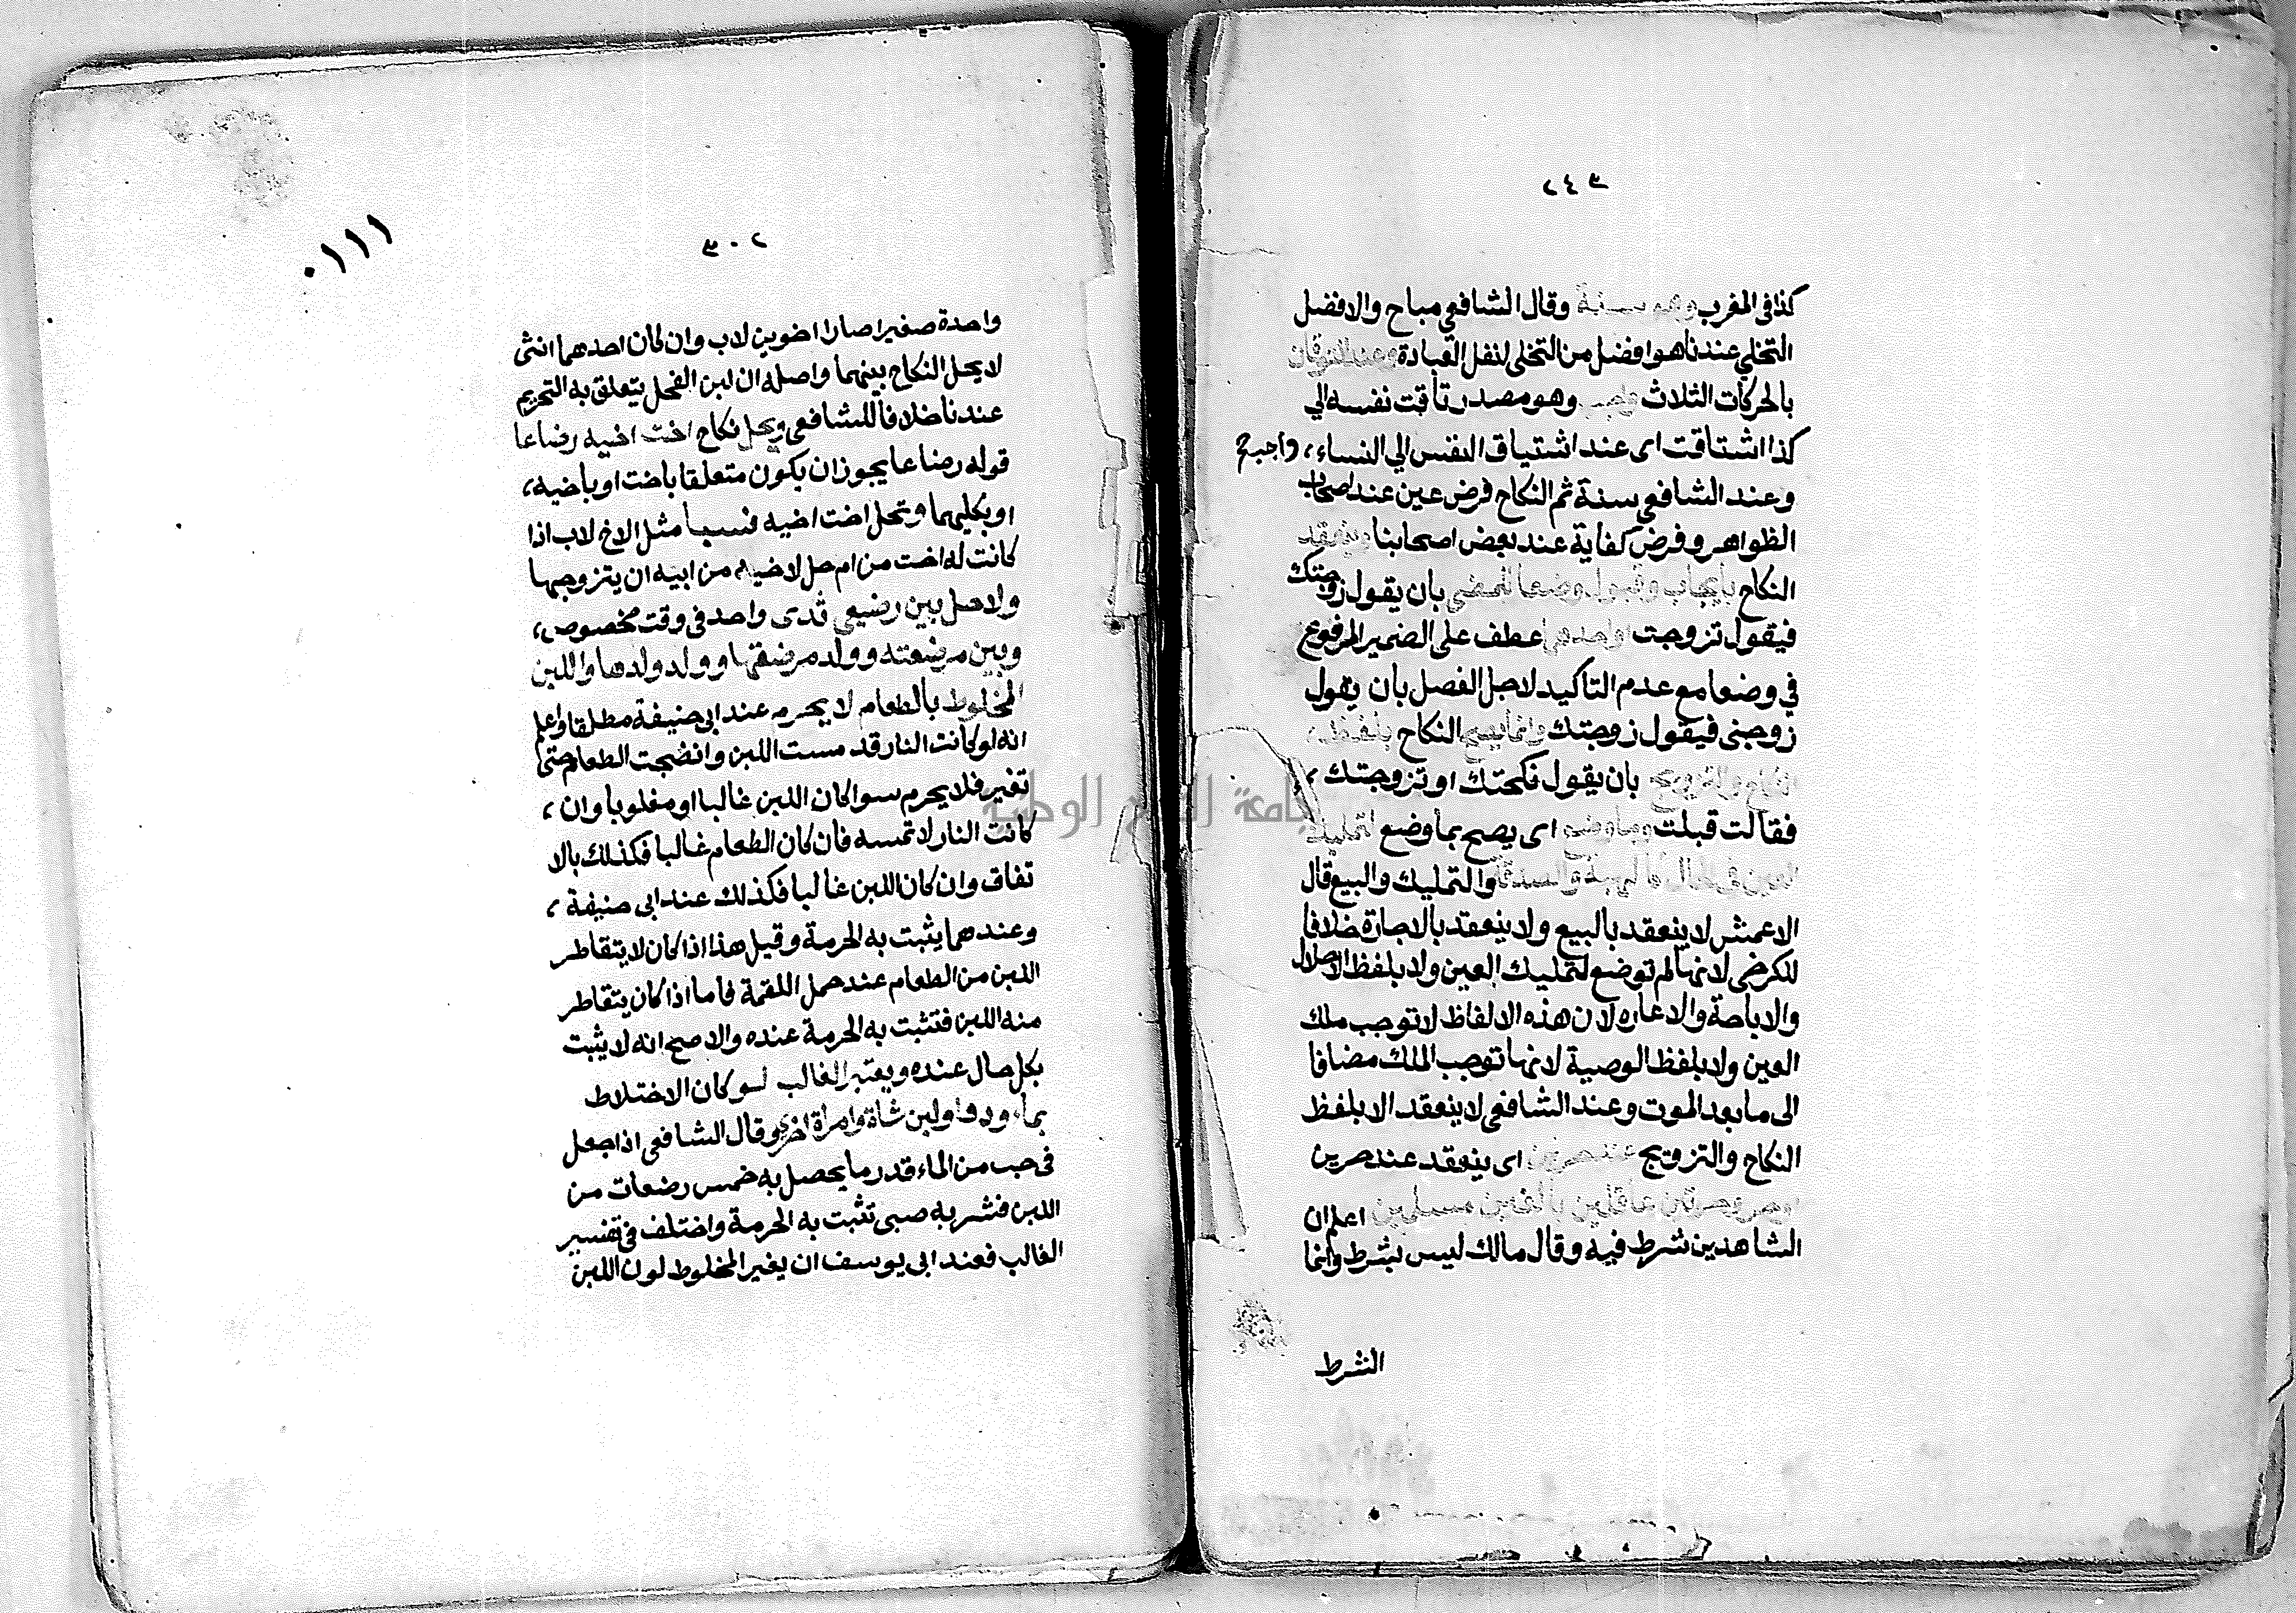 ٢٤٣
كذا فى المغرب وهو سنة وقال الشافعي مباح والافضل
التخلي عندنا هوافضل من التخلى لنفل العبادة وعند التوقان
بالحركات الثلاث واجب وهو مصدر تأقت نفسه الي
كذا اشتاقت اى عند اشتياق النفس الي النساء، واجب
وعند الشافعي سنة ثم النكاح فرض عين عند اصحاب
الظواهر وفرض كفاية عند بعض اصحابنا وينعقد
النكاح بايجاب وقبول وضعا للمضى بان يقول زوجتك
فيقول تزوجت او احدهما عطف على الضمير المرفوع
في وضعا مع عدم التاكيد لاجل الفصل بان يقول
زوجنى فيقول زوجتك وانما يصح النكاح بلفظ
النكاح والتزويج بان يقول نكحتك او تزوجتك،
فقالت قبلت وما وضع اى يصح بما وضع لتمليك
العين فى الحال كالهبة والصدقة والتمليك والبيع قال
الاعمش لا ينعقد بالبيع ولا ينعقد بالاجارة خلافا
للكرخى لانها لم توضع لتمليك العين ولا بلفظ الاحلال
والاباحة والاعاره لان هذه الالفاظ لا توجب ملك
العين ولا بلفظ الوصية لانها توجب الملك مضافا
الى ما بعد الموت وعند الشافعي لا ينعقد الا بلفظ
النكاح والتزويج عند حرين اى ينعقد عند حرين
او حر وحرتين عاقلين بالغين مسلمين اعلم ان
الشاهدين شرط فيه وقال مالك ليس بشرط وانما
الشرط
٣٠٢
٠١١١
واحدة صغيرا صارا اخوين لاب وان كان احدهما انثى
لا يحل النكاح بينهما واصله ان لبن الفحل يتعلق به التحريم
عندنا خلافا للشافعى ويحل نكاح اخت اخيه رضاعا
قوله رضاعا يجوز ان يكون متعلقا باخت او باخيه،
او بكليهما وتحل اخت اخيه نسبا مثل الاخ لاب اذا
كانت له اخت من ام حل لاخيه من ابيه ان يتزوجها
ولا حل بين رضيعي ثدى واحد فى وقت مخصوص،
وبين مرضعته وولد مرضعتها وولد ولدها واللبن
المخلوط بالطعام لا يحرم عند ابى حنيفة مطلقا واعلم
انه لو كانت النار قد مست اللبن وانضجت الطعام حتى
تغير فلا يحرم سوا كان اللبن غالبا او مغلوبا وان،
كانت النار لا تمسه فان كان الطعام غالبا فكذلك بالا
تفاق وان كان اللبن غالبا فكذلك عند ابى حنيفة،
وعندهما يثبت به الحرمة وقيل هذا اذا كان لا يتقاطر
اللبن من الطعام عند حمل اللقمة فاما اذا كان يتقاطر
منه اللبن فتثبت به الحرمة عنده والاصح انه لا يثبت
بكل حال عنده ويعتبر الغالب لو كان الاختلاط
بماء ودوا ولبن شاة وامراة اخرى وقال الشافعى اذا جعل
فى حب من الماء قدر ما يحصل به خمس رضعات من
اللبن فشربه صبى تثبت به الحرمة واختلف فى تفسير
الغالب فعند ابى يوسف ان يغير المخلوط لون اللبن
جامعة النجاح الوطنية